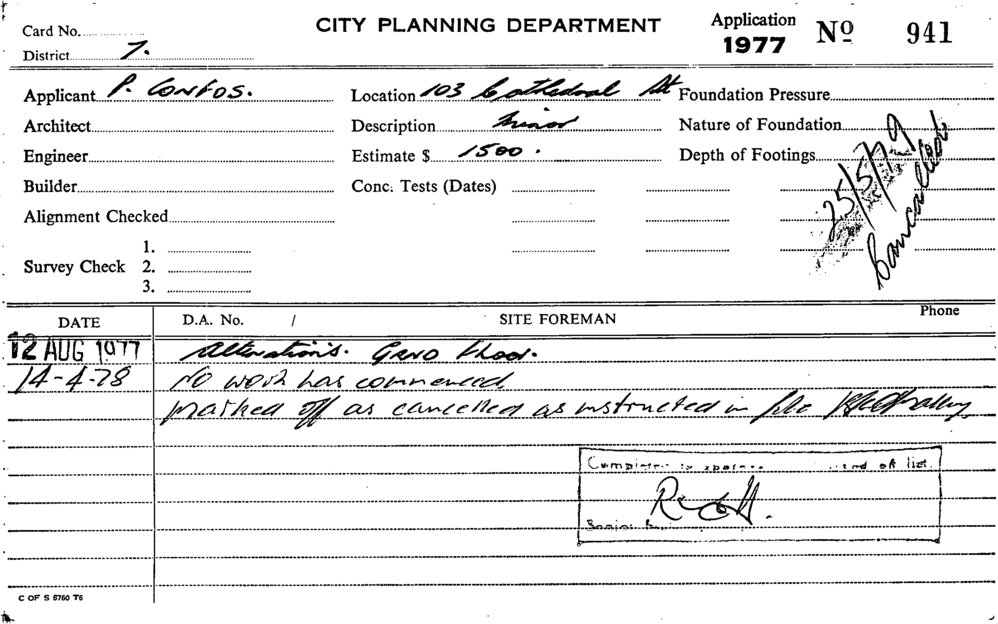 Card No.
CITY PLANNING DEPARTMENT
Application
1977
No 941
District 7.
Applicant P. CONFOS.
Location 103 Cathedral St
Foundation Pressure
Architect
Description Minor
Nature of Foundation
Engineer
Estimate $ 1500.
Depth of Footings
Builder
Conc. Tests (Dates)
25/5/79
Cancelled
Alignment Checked
1.
Survey Check 2.
3.
DATE
D.A. No. /
SITE FOREMAN
Phone
12 AUG 1977 Alterations. GRND Floor.
14-4-78 No work has commenced
marked off as cancelled as instructed in
list.
C OF S 5760 T6